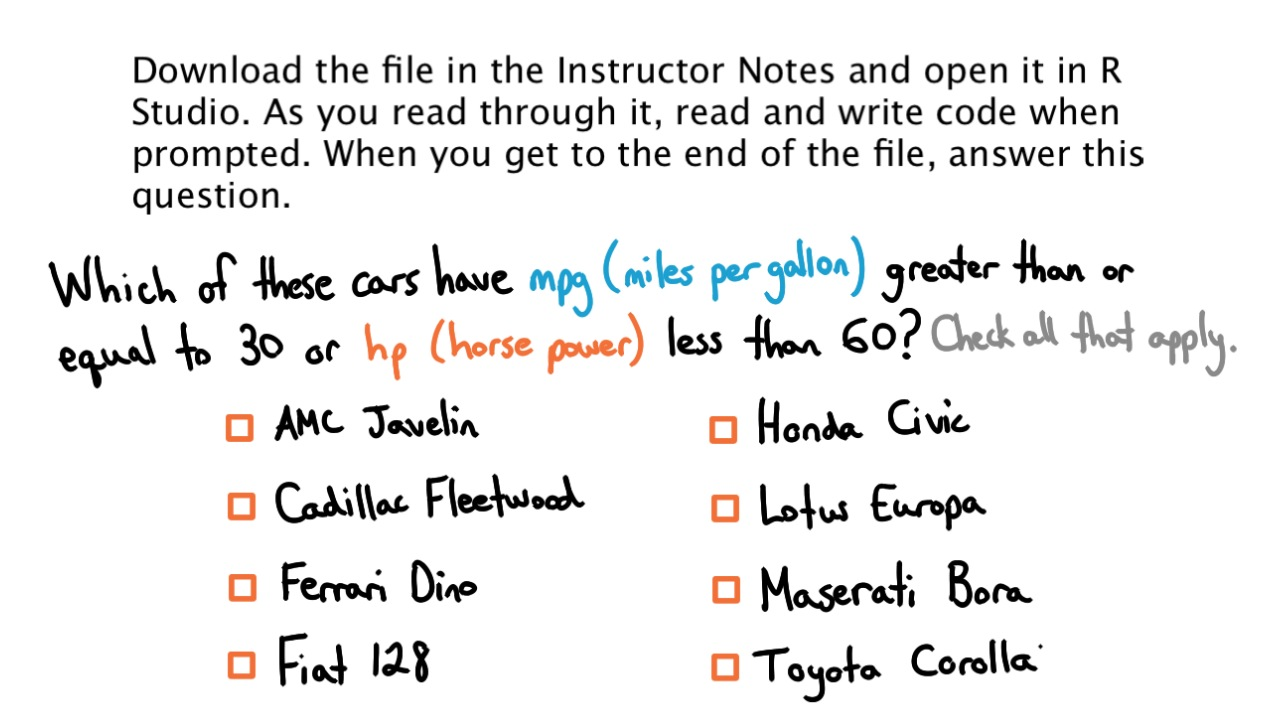 Download the file in the Instructor Notes and open it in R
Studio. As you read through it, read and write code when
prompted. When you get to the end of the file, answer this
question.
Which of these cars have mpg (miles per gallon) greater than or
equal to 30 or hp (horse power) less than 60? Check all that apply.
AMC Javelin
Cadillac Fleetwood
Ferrari Dino
Fiat 128
Honda Civic
Lotus Europa
Maserati Bora
Toyota Corolla